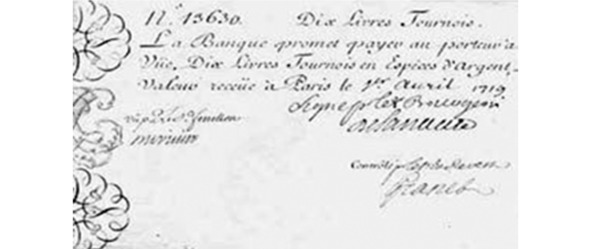 N.º 13630. Dix Livres Tournois.
La Banque promet payer au porteur à
Vüe, Dix Livres Tournois en Especes d'Argent,
valeur receüe à Paris le 1er Avril 1719
Signé p.r le S.r
Controllé p.r le S.r
Granet